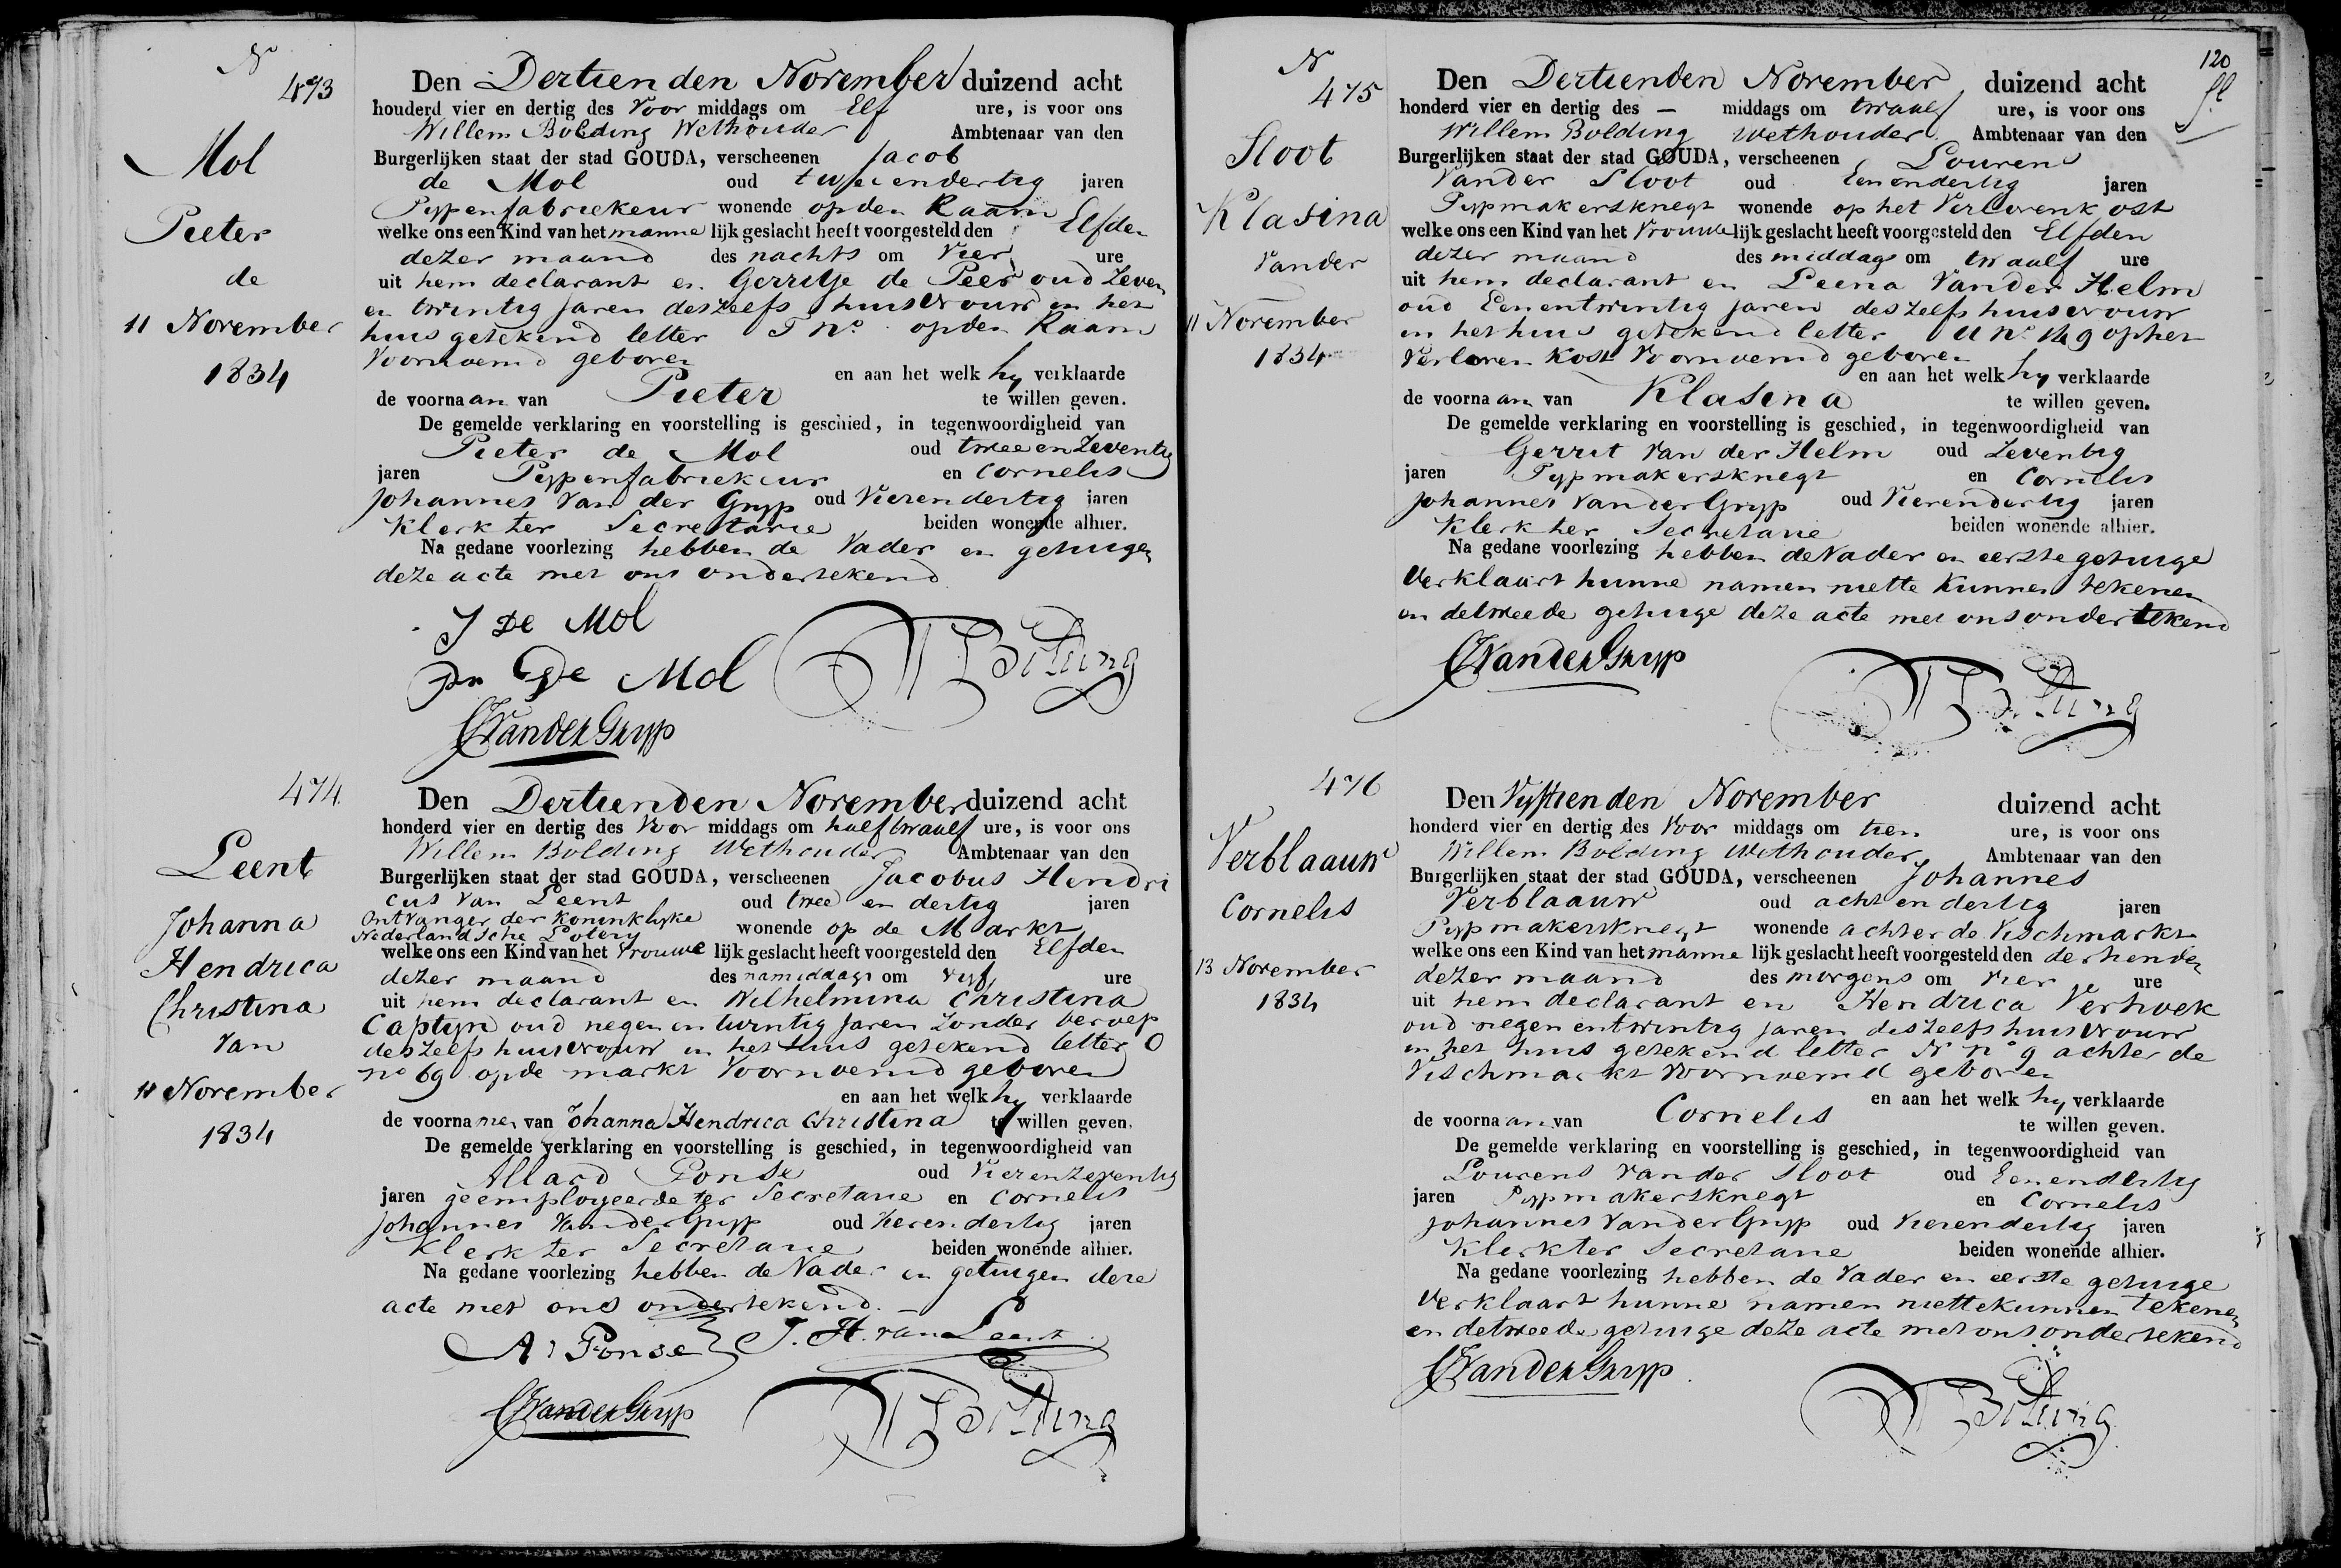 N
473
Mol
Pieter
de
11 November
1834
Den Dertienden November duizend acht
honderd vier en dertig des Voor middags om Elf ure, is voor ons
Willem Bolding Wethouder Ambtenaar van den
Burgerlijken staat der stad GOUDA, verscheenen Jacob
de Mol oud tweeendertig jaren
Pypenfabriekeur wonende op den Raam
welke ons een Kind van het manne lijk geslacht heeft voorgesteld den Elfden
dezer maand des nachts om Vier ure
uit hem declarant en Gerritje de Peer oud Zeven
en twintig jaren deszelfs huisvrouw in het
huis getekend letter No op den Raam
Voornoemd geboren
en aan het welk hy verklaarde
de voorna am van Pieter te willen geven.
De gemelde verklaring en voorstelling is geschied, in tegenwoordigheid van
Pieter de Mol oud twee en Zeventig
jaren Pypenfabriekeur en Cornelis
Johannes Van der Gryp oud Vierendertig jaren
Klerk ter Secretarie beiden wonende alhier.
Na gedane voorlezing hebben de Vader en getuigen
deze acte met ons ondertekend
J De Mol
Pr De Mol W Bolding
CJVanderGryp
474
Leent
Johanna
Hendrica
Christina
Van
11 November
1834
Den Dertienden November duizend acht
honderd vier en dertig des Voor middags om half twaalf ure, is voor ons
Willem Bolding Wethouder Ambtenaar van den
Burgerlijken staat der stad GOUDA, verscheenen Jacobus Hendri
cus Van Leent oud twee en dertig jaren
Ontvanger der Koninklyke
Nederlandsche Lotery wonende op de Markt
welke ons een Kind van het Vrouwe lijk geslacht heeft voorgesteld den Elfden
dezer maand des namiddags om vyf ure
uit hem declarant en Wilhelmina Christina
Captyn oud negen en twintig jaren zonder beroep
deszelfs huisvrouw in het huis getekend letter O
no 69 op de markt Voornoemd geboren
en aan het welk hy verklaarde
de voorna men van Johanna Hendrica Christina te willen geven.
De gemelde verklaring en voorstelling is geschied, in tegenwoordigheid van
Allard Ponse oud Vierenzeventig
jaren geemployeerde ter Secretarie en Cornelis
Johannes VanderGryp oud Vierendertig jaren
Klerk ter Secretarie beiden wonende alhier.
Na gedane voorlezing hebben de Vader en getuigen deze
acte met ons ondertekend.
A: Ponse J. H. van Leent
CJVanderGryp W Bolding
120
N
475
Sloot
Klasina
Vander
11 November
1834
Den Dertienden November duizend acht
honderd vier en dertig des — middags om twaalf ure, is voor ons
Willem Bolding Wethouder Ambtenaar van den
Burgerlijken staat der stad GOUDA, verscheenen Lourens
Vander Sloot oud Eenendertig jaren
Pypmakersknegt wonende op het Verlorenkost
welke ons een Kind van het Vrouwe lijk geslacht heeft voorgesteld den Elfden
dezer maand des middags om twaalf ure
uit hem declarant en Leena Vander Helm
oud Eenentwintig jaren deszelfs huisvrouw
in het huis getekend letter no 149 op het
Verloren Kost Voornoemd geboren
en aan het welk hy verklaarde
de voorna am van Klasina te willen geven.
De gemelde verklaring en voorstelling is geschied, in tegenwoordigheid van
Gerrit Van der Helm oud Zeventig
jaren Pypmakersknegt en Cornelis
Johannes VanderGryp oud Vierendertig jaren
Klerk ter Secretarie beiden wonende alhier.
Na gedane voorlezing hebben de Vader en eerste getuige
Verklaart hunne namen niet te kunnen tekenen
en de tweede getuige deze acte met ons ondertekend
CJVanderGryp
W Bolding
476
Verblaauw
Cornelis
13 November
1834
Den Vyftienden November duizend acht
honderd vier en dertig des Voor middags om tien ure, is voor ons
Willem Bolding Wethouder Ambtenaar van den
Burgerlijken staat der stad GOUDA, verscheenen Johannes
Verblaauw oud acht en dertig jaren
Pypmakersknegt wonende achter de Vischmarkt
welke ons een Kind van het manne lijk geslacht heeft voorgesteld den dertienden
dezer maand des morgens om vier ure
uit hem declarant en Hendrica Verhoek
oud negen entwintig jaren deszelfs huisvrouw
in het huis getekend letter N no 9 achter de
Vischmarkt Voornoemd geboren
en aan het welk hy verklaarde
de voorna am van Cornelis te willen geven.
De gemelde verklaring en voorstelling is geschied, in tegenwoordigheid van
Lourens Vander Sloot oud Eenendertig
jaren Pypmakersknegt en Cornelis
Johannes VanderGryp oud Vierendertig jaren
Klerk ter Secretarie beiden wonende alhier.
Na gedane voorlezing hebben de Vader en eerste getuige
Verklaart hunne namen niet te kunnen tekenen
en de tweede getuige deze acte met ons ondertekend
CJVanderGryp
W Bolding